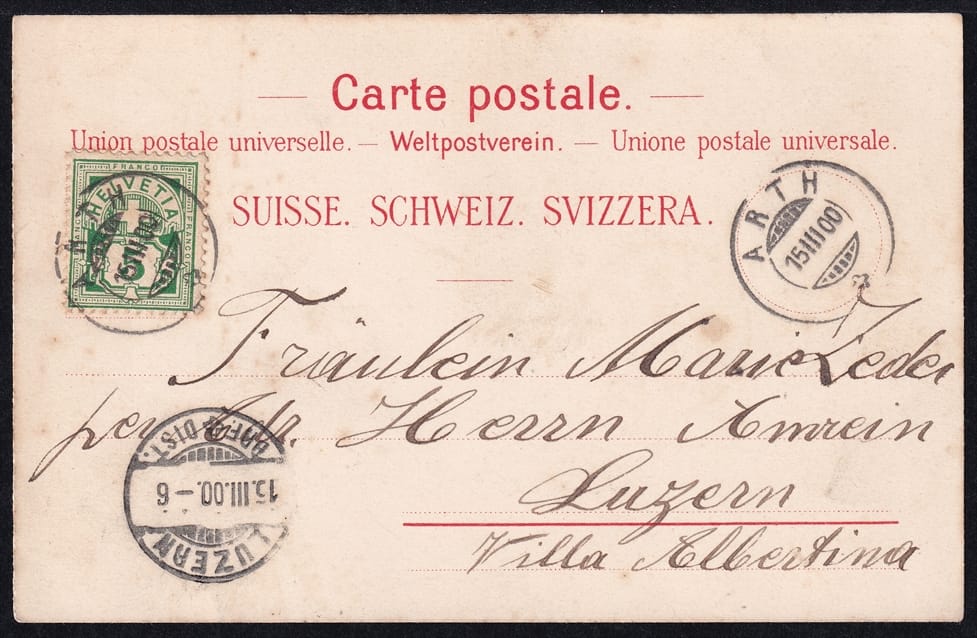 Carte postale.
Union postale universelle. — Weltpostverein. — Unione postale universale.
SUISSE. SCHWEIZ. SVIZZERA.
FRANCO
HELVETIA
FRANCO
5
ARTH
15III00
ARTH
15III00
Fräulein Marie Zeder
per Adr. Herrn Amrein
Luzern
Villa Albertina
BRF. DIST.
15.III.00.–6
LUZERN